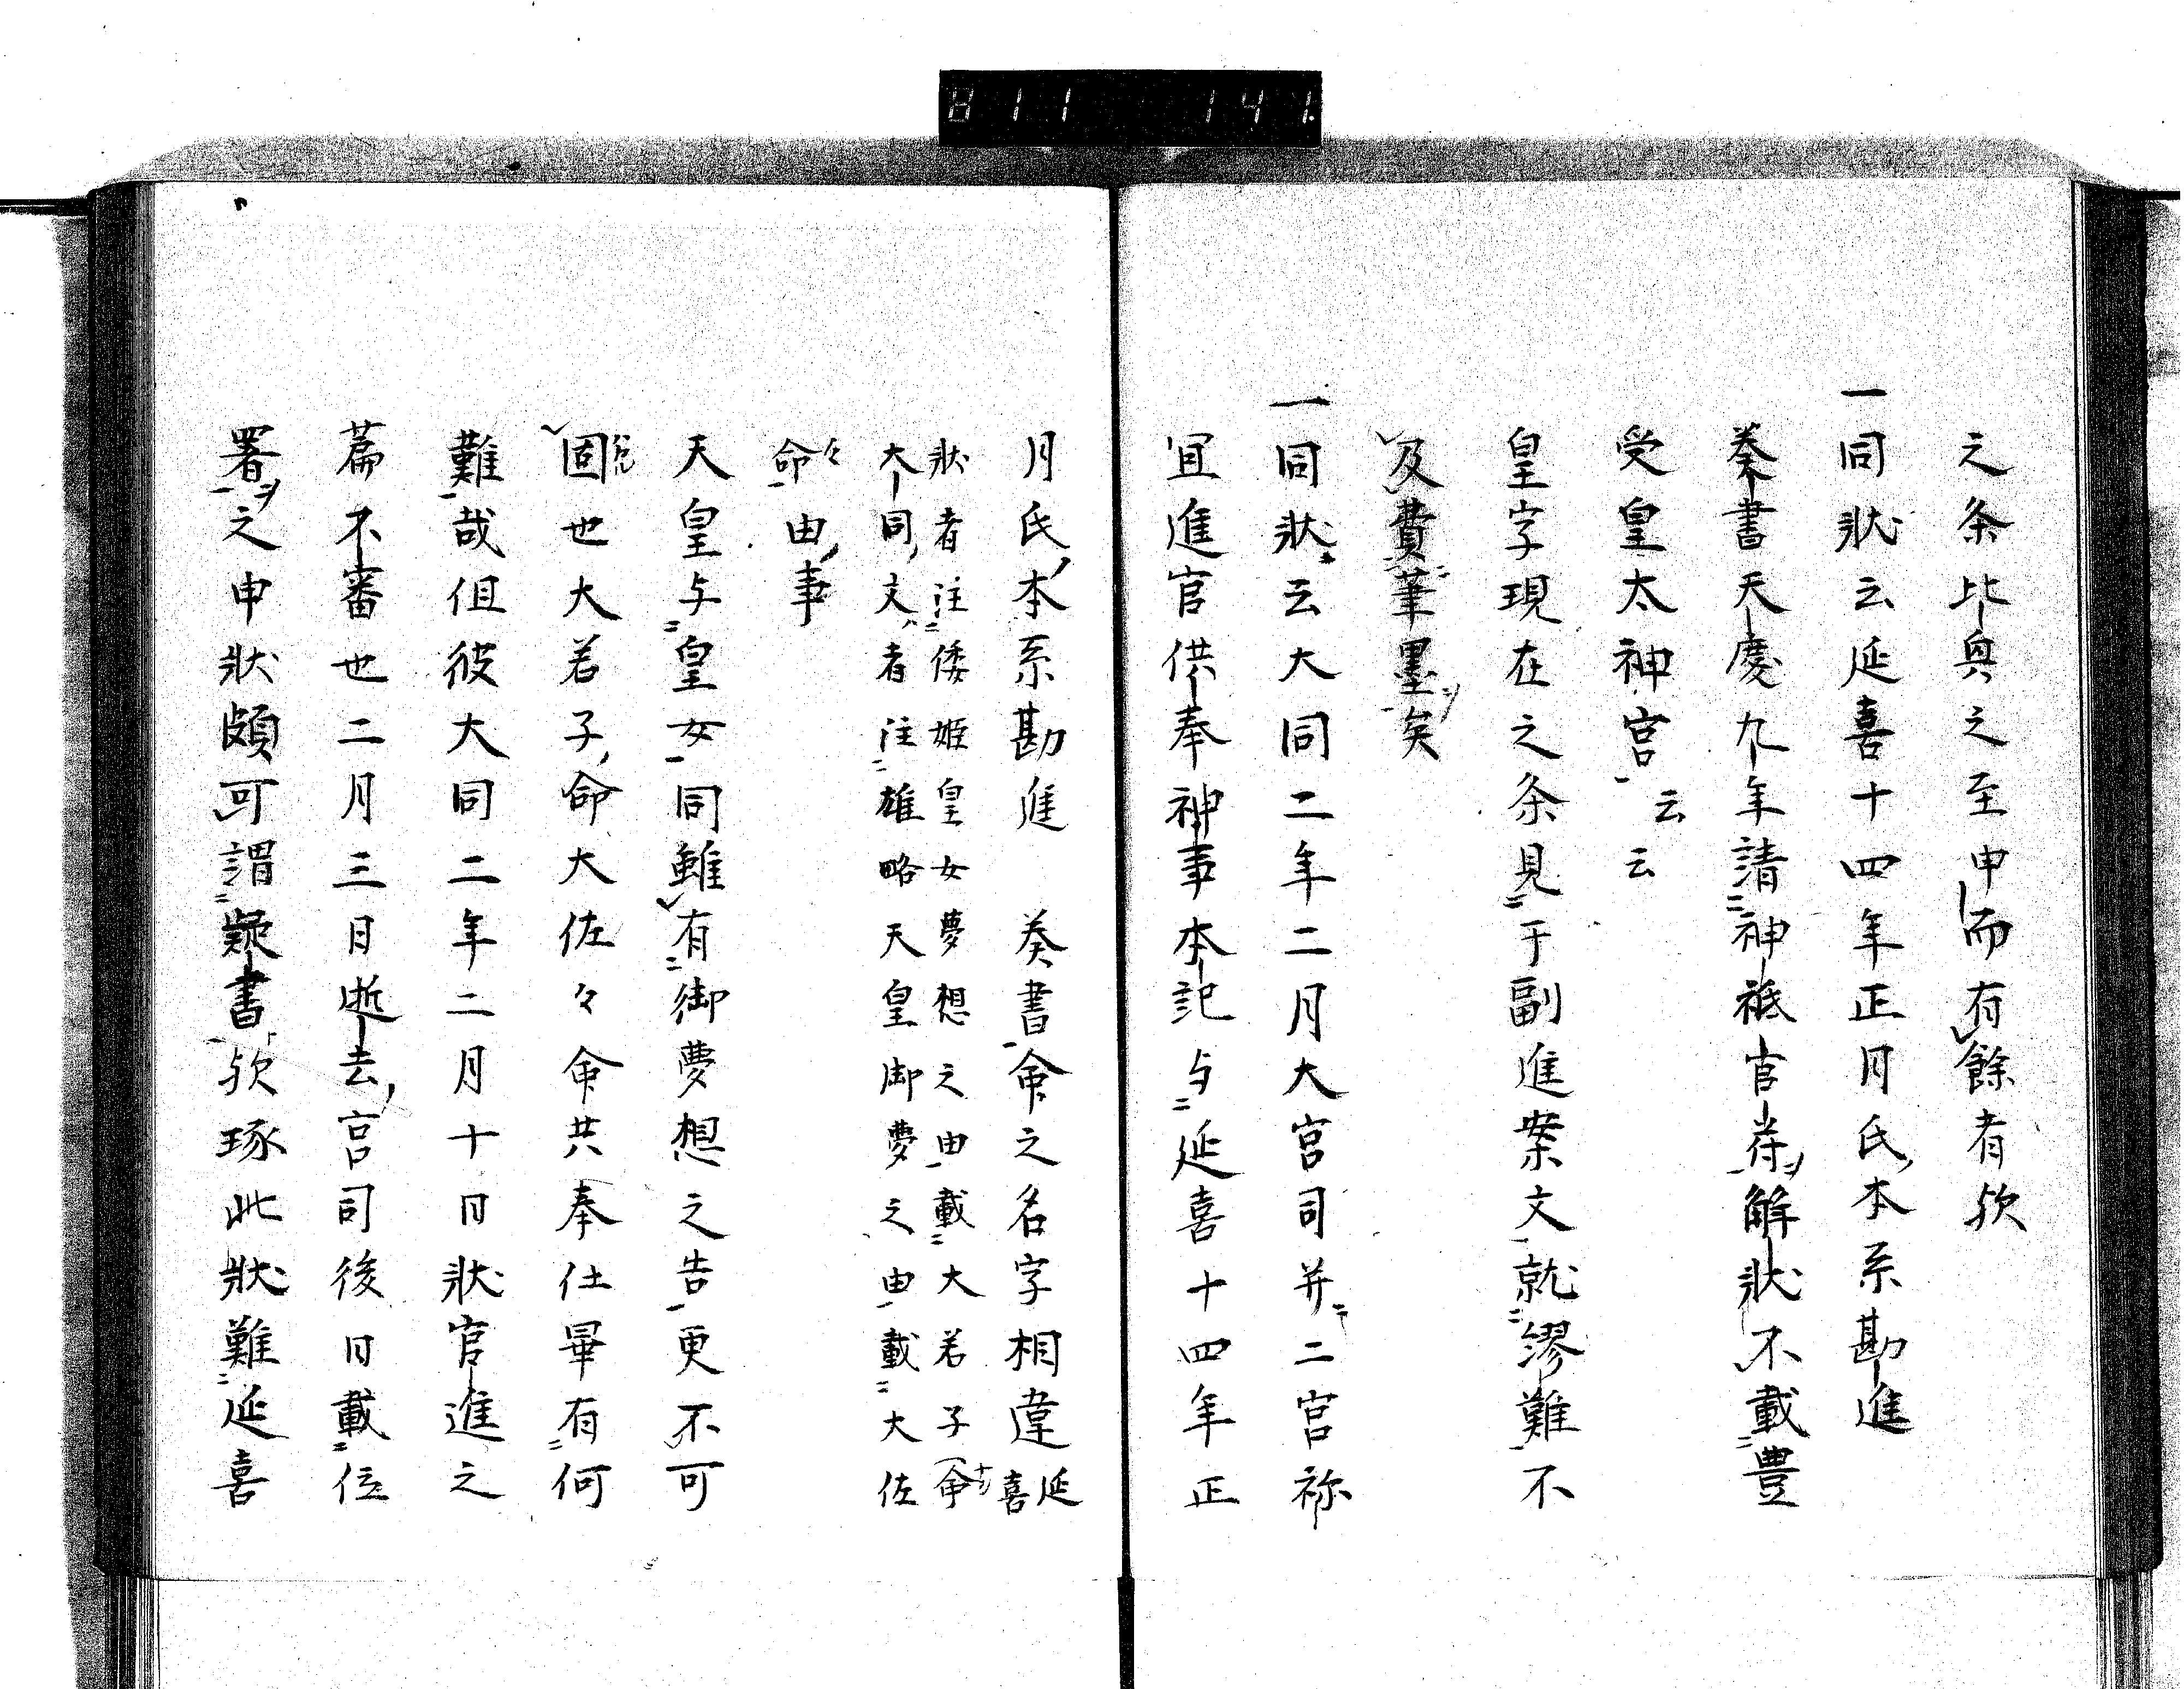 811 141
之条比興之至申而有餘者欤
一同狀云延喜十四年正月氏本系勘進
奏書天慶九年請神祇官苻解狀不載豊
受皇太神宮云云
皇字現在之条見于副進案文就謬難不
及費筆墨矣
一同狀云大同二年二月大宮司并二宮祢
宜進官供奉神事本記与延喜十四年正
月氏本系勘進 奏書命之名字相違延喜
狀者注倭姫皇女夢想之由載大若子命
大同文者注雄略天皇御夢之由載大佐
々命由事
天皇与皇女同雖有御夢想之告更不可
固也大若子命大佐々命共奉仕畢有何
難哉但彼大同二年二月十日狀官進之
篇不審也二月三日逝去宮司後日載位
署之申狀頗可謂疑書欤琢此狀難延喜